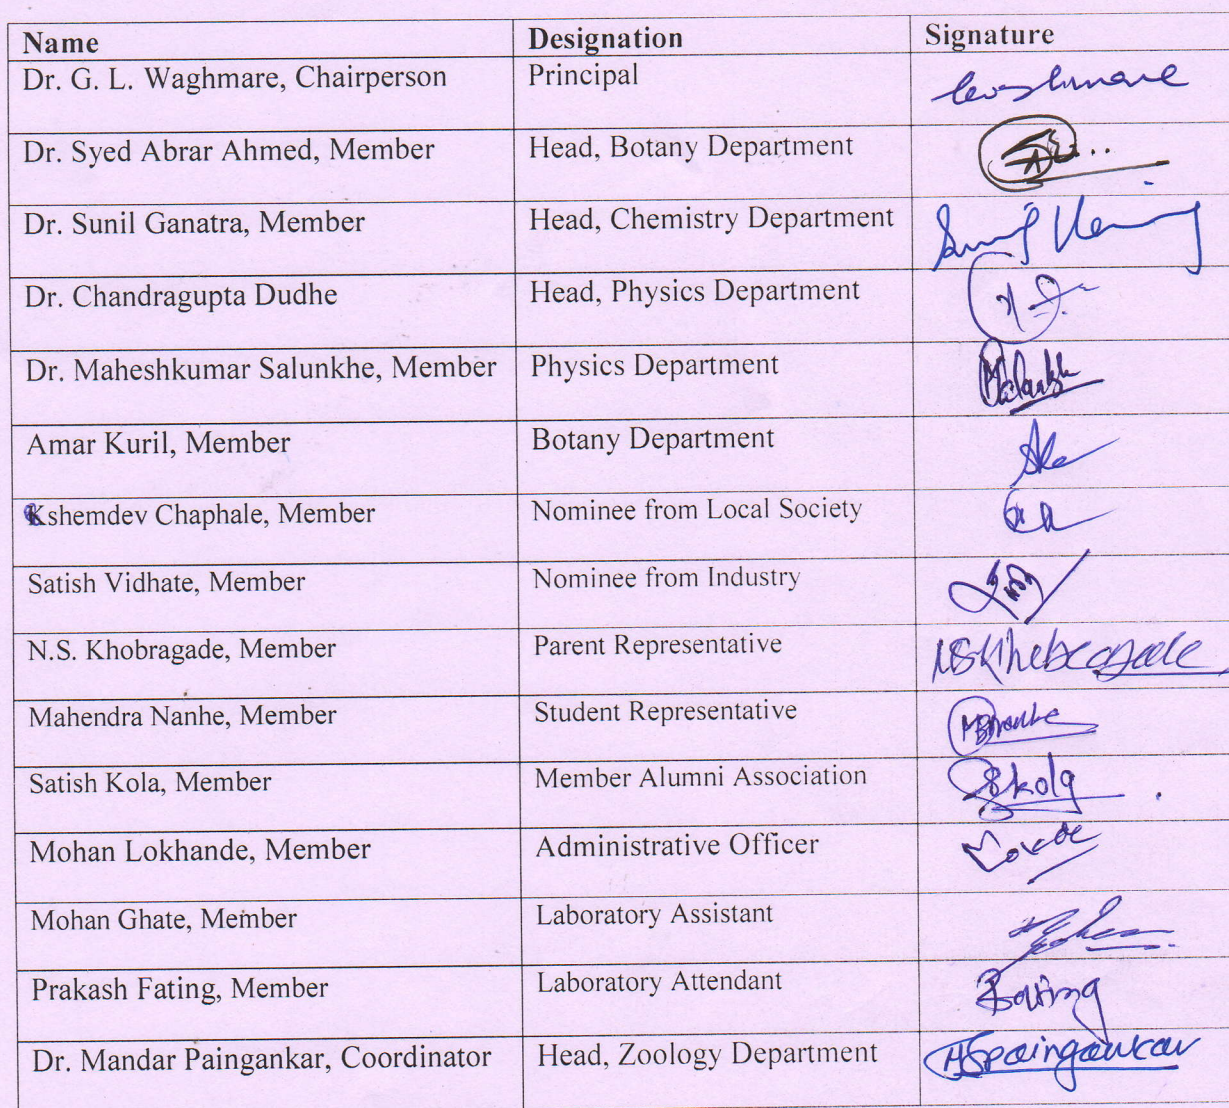 Name Designation Signature
Dr. G. L. Waghmare, Chairperson Principal
Dr. Syed Abrar Ahmed, Member Head, Botany Department
Dr. Sunil Ganatra, Member Head, Chemistry Department
Dr. Chandragupta Dudhe Head, Physics Department
Dr. Maheshkumar Salunkhe, Member Physics Department
Amar Kuril, Member Botany Department
Kshemdev Chaphale, Member Nominee from Local Society
Satish Vidhate, Member Nominee from Industry
N.S. Khobragade, Member Parent Representative
Mahendra Nanhe, Member Student Representative
Satish Kola, Member Member Alumni Association Skola
Mohan Lokhande, Member Administrative Officer
Mohan Ghate, Member Laboratory Assistant
Prakash Fating, Member Laboratory Attendant
Dr. Mandar Paingankar, Coordinator Head, Zoology Department MSpaingankar